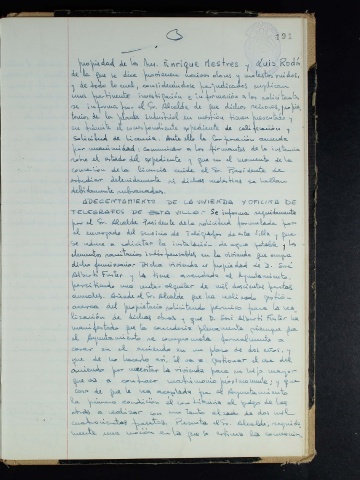 191
propiedad de los Srs. Enrique Mestres y Luis Rodó
de la que se dice provienen nocivos olores y molestos ruidos,
y de todo lo cual, considerándose perjudicados suplican
una pertinente investigación e información a los solicitantes
se informa por el Sr. Alcalde de que dichos señores, propie
tarios de la planta industrial en cuestión tienen presentado y
en trámite el correspondiente expediente de calificación y
solicitud de licencia. Ante ello la Corporación acuerda
por unanimidad; comunicar a los firmantes de la instancia
sobre el estado del expediente y que en el momento de la
concesión de la licencia cuide el Sr. Presidente de
estudiar detenidamente si dichas molestias se hallan
debidamente subsanadas.
ADECENTAMIENTO DE LA VIVIENDA Y OFICINA DE
TELEGRAFOS DE ESTA VILLA.- Se informa seguidamente
por el Sr. Alcalde Presidente de la solicitud formulada por
el encargado del servicio de Telégrafos de esta Villa y que
se reduce a solicitar la instalación de agua potable y los
elementos sanitarios indispensables en la vivienda que ocupa
dicho funcionario. Dicha vivienda es propiedad de D. José
Alberti Fuster y la tiene arrendada al Ayuntamiento,
percibiendo una renta regular de mil doscientas pesetas
anuales. Añade el Sr. Alcalde que ha realizado gestio-
nes cerca del propietario solicitando permiso para la rea
lización de dichas obras y que D. José Alberti Fuster ha
manifestado que lo concedería plenamente siempre que
el Ayuntamiento se comprometa formalmente a
cesar en el arriendo en un plazo de dos años; y
que de no hacerlo así, él va a gestionar el cese del
arriendo por necesitar la vivienda para un hijo mayor
que va a contraer matrimonio próximamente; y que
caso de que le sea aceptada por el Ayuntamiento
la primera condición él contribuiría al pago de las
obras a realizar con un tanto alzado de dos mil
cuatrocientas pesetas. Presenta el Sr. Alcalde, seguida
mente una moción en la que se informa la concesión